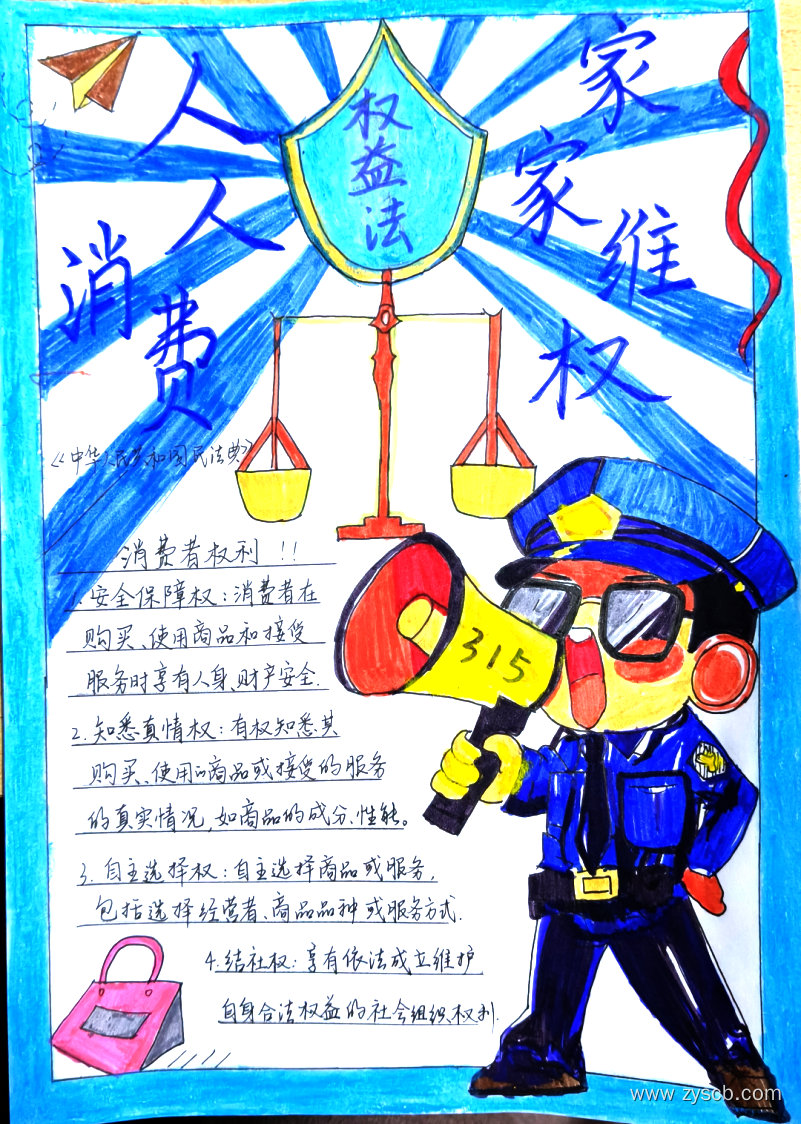 人人消费
权益法
家家维权
《中华人民共和国民法典》
消费者权利!!
1.安全保障权:消费者在
购买、使用商品和接受
服务时享有人身、财产安全.
315
2.知悉真情权:有权知悉其
购买、使用的商品或接受的服务
的真实情况,如商品的成分、性能。
3.自主选择权:自主选择商品或服务,
包括选择经营者、商品品种或服务方式.
4.结社权:享有依法成立维护
自身合法权益的社会组织权利.
www.zyscb.com